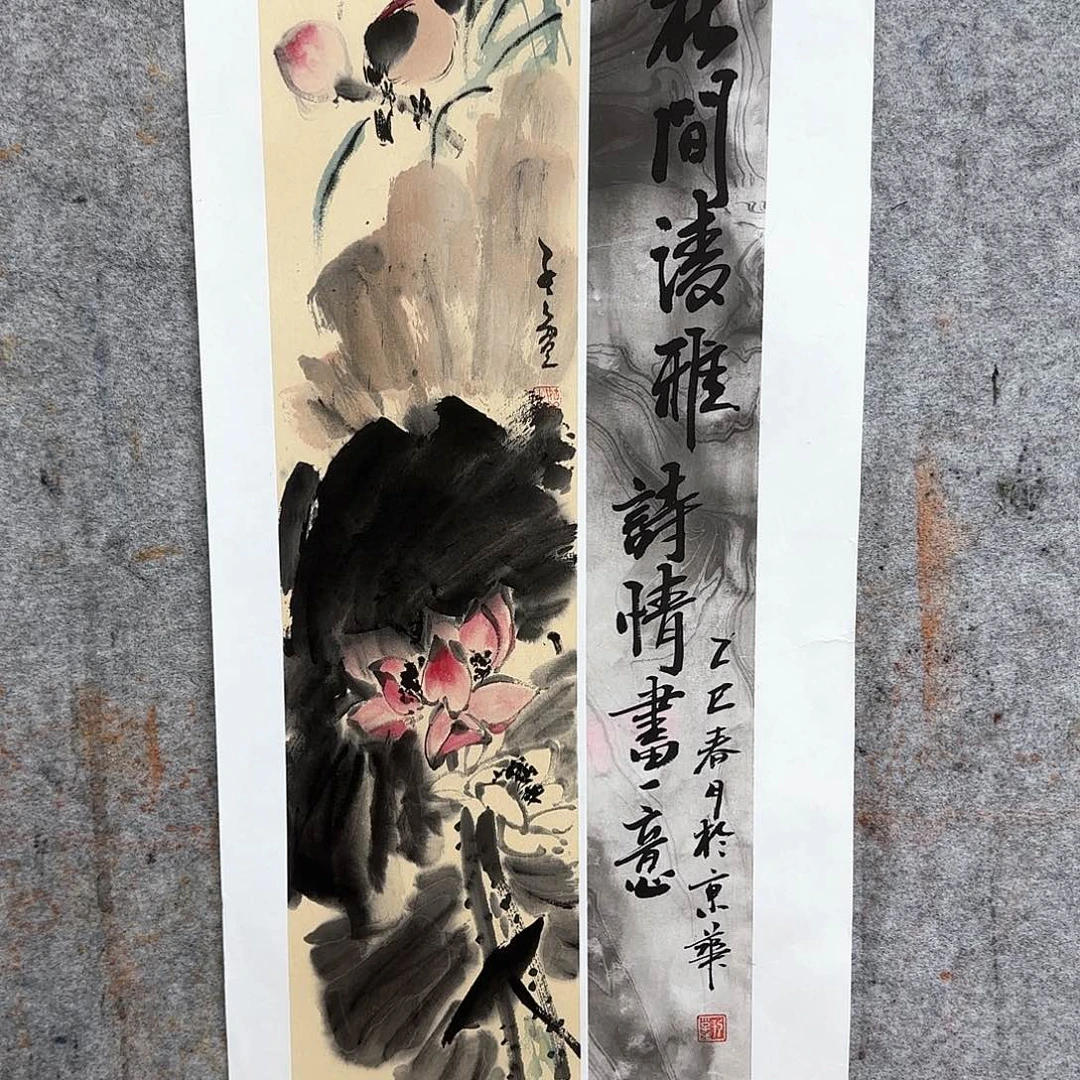 花間淩雅
詩情畫意
乙巳春月於京華